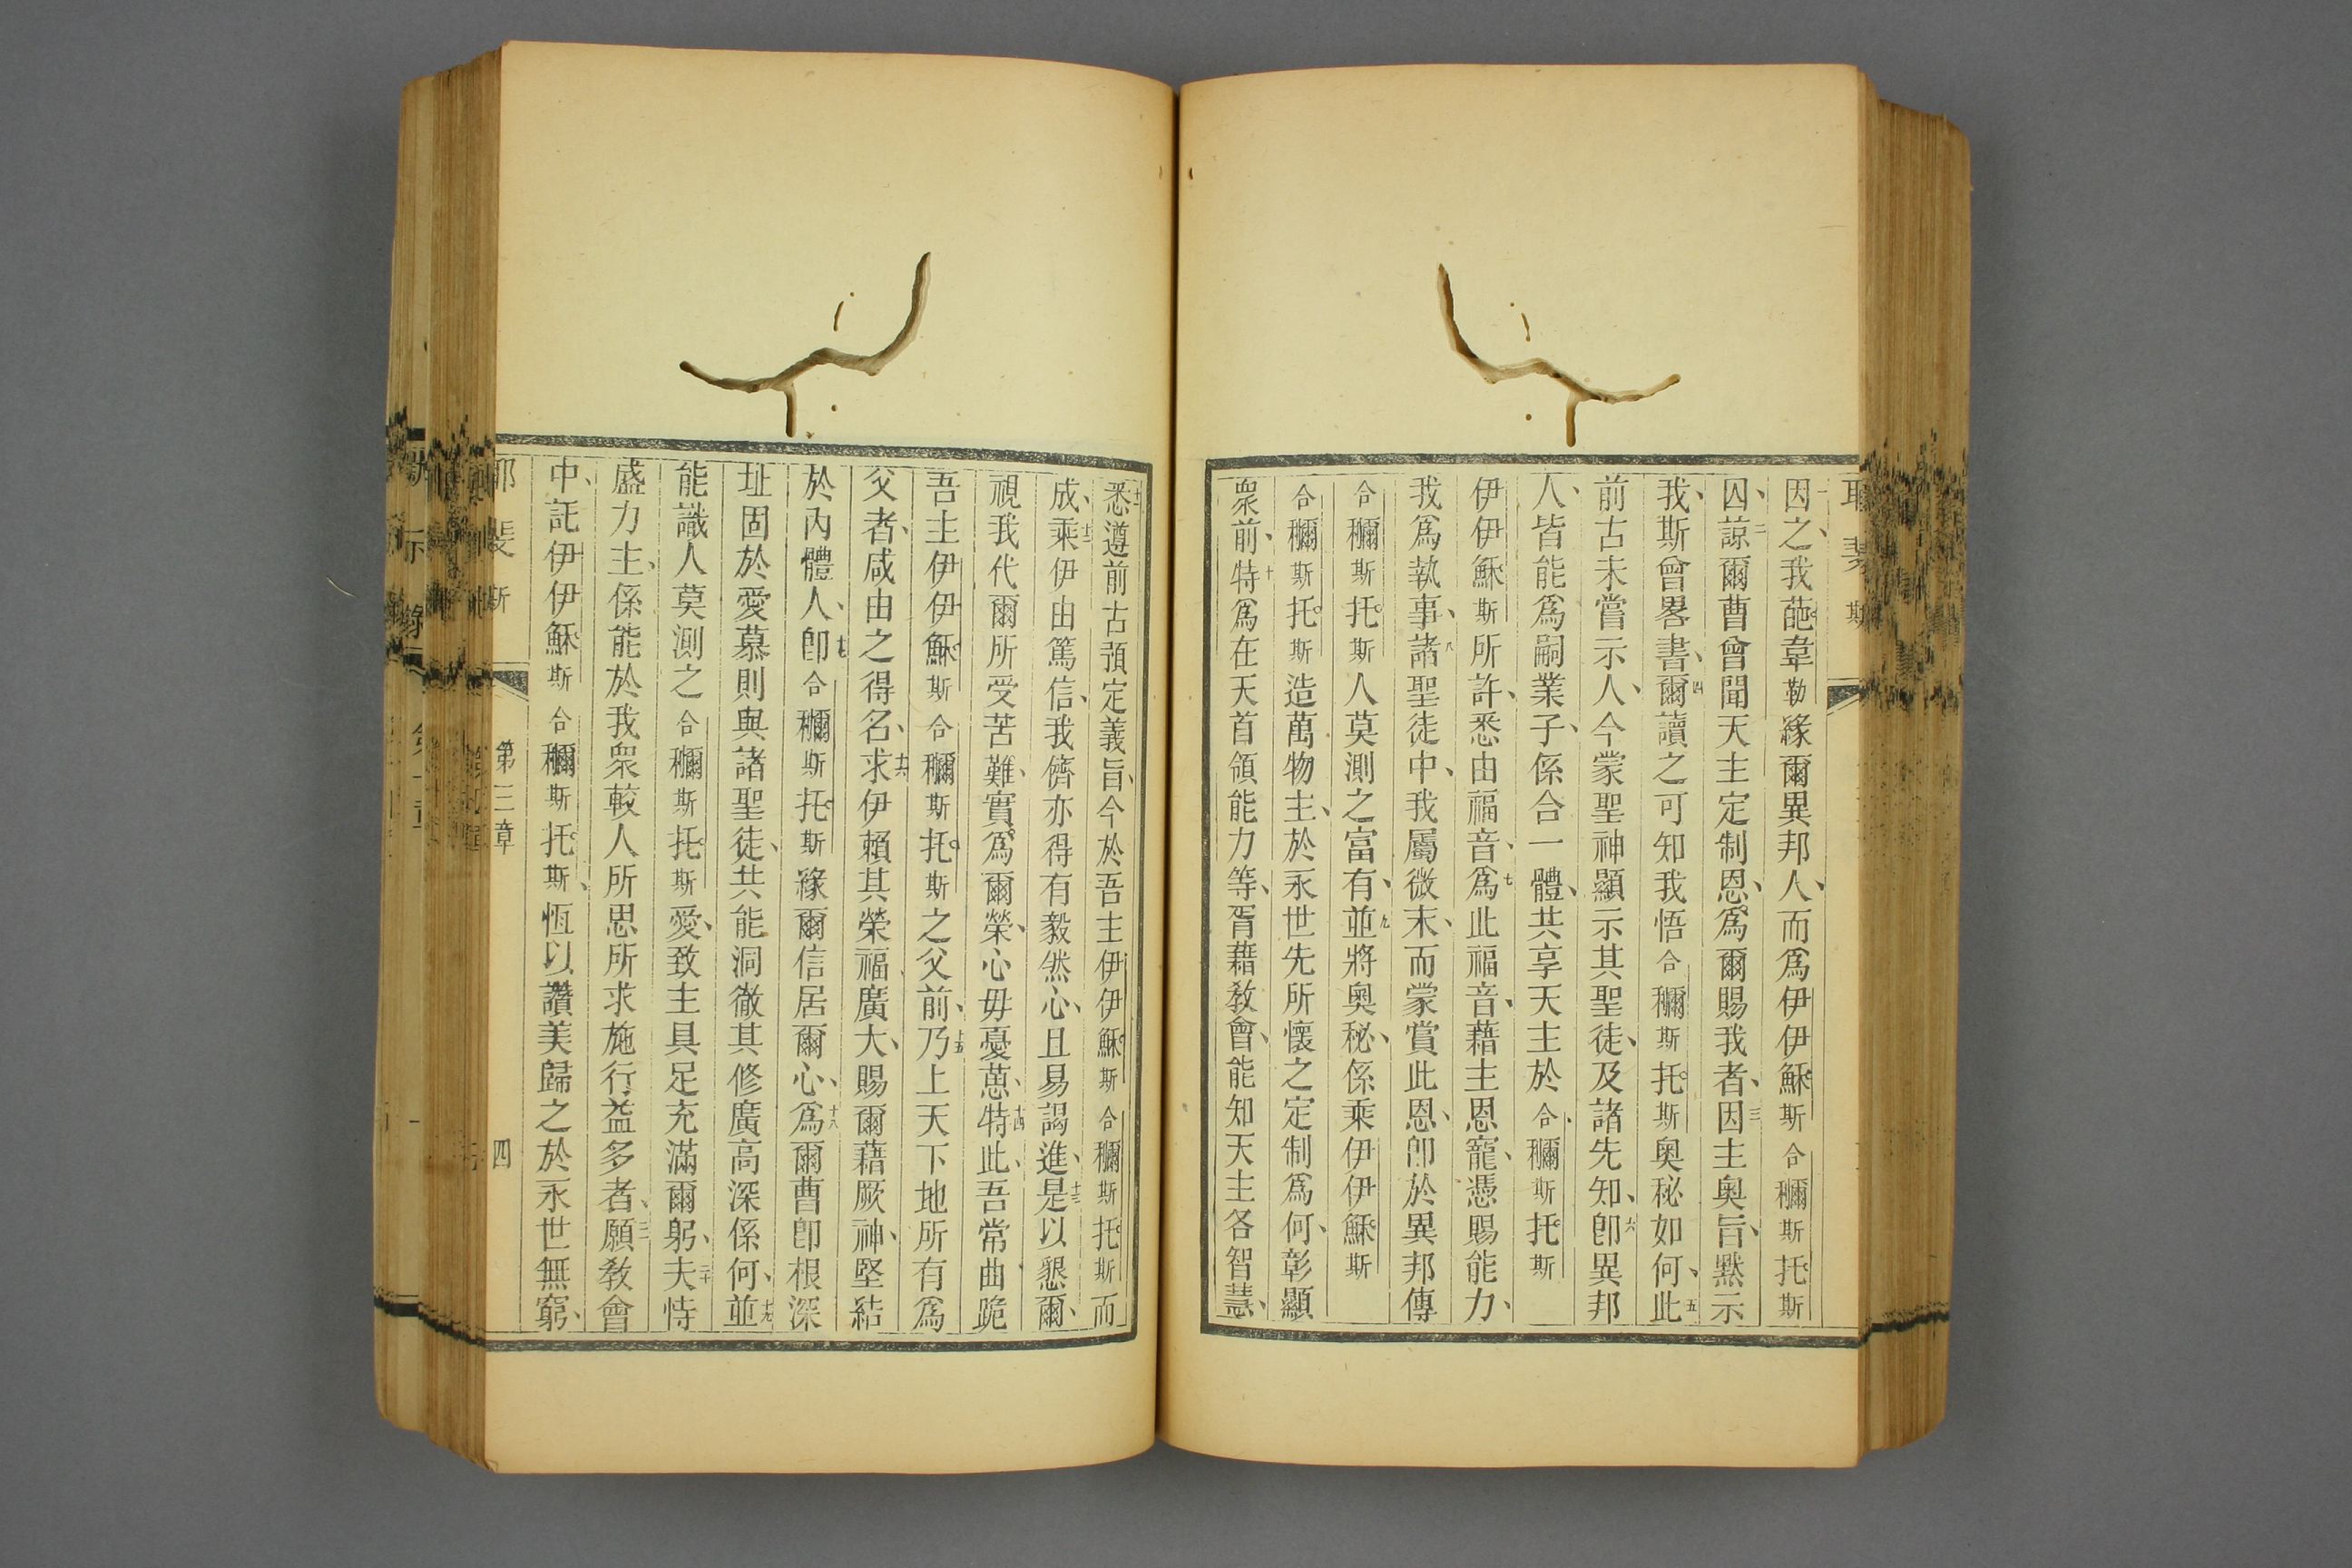 耶斐斯
一因之、我葩韋勒緣爾異邦人、而爲伊伊穌斯合穪斯托斯
囚、二諒爾曹曾聞天主定制恩、爲爾賜我者、三因主奧旨、默示
我、斯曾畧書、四爾讀之可知我悟合穪斯托斯奧秘如何、五此
前古未嘗示人、今蒙聖神顯示其聖徒、及諸先知、六卽異邦
人、皆能爲嗣業子、係合一體、共享天主於合穪斯托斯
伊伊穌斯所許、悉由福音、七爲此福音、藉主恩寵、憑賜能力、
我爲執事、八諸聖徒中、我屬微末、而蒙賞此恩、卽於異邦傳
合穪斯托斯人莫測之富有、九並將奧秘、係乘伊伊穌斯
合穪斯托斯造萬物主、於永世先所懷之定制爲何、彰顯
衆前、十特爲在天首領能力等、胥藉敎會、能知天主各智慧、
十一悉遵前古預定義旨、今於吾主伊伊穌斯合穪斯托斯而
成、十二乘伊由篤信、我儕亦得有毅然心、且易謁進、十三是以懇爾、
視我代爾所受苦難、實爲爾榮、心毋憂葸、十四特此、吾常曲跪
吾主伊伊穌斯合穪斯托斯之父前、十五乃上天下地所有爲
父者、咸由之得名、十六求伊賴其榮福廣大、賜爾藉厥神、堅結
於內體人、十七卽合穪斯托斯緣爾信居爾心、十八爲爾曹卽根深
址固於愛慕則與諸聖徒、共能洞徹其修廣高深係何、十九並
能識人莫測之合穪斯托斯愛、致主具足充滿爾躬、二十夫恃
盛力主、係能於我衆較人所思所求施行益多者、二一願敎會
中、託伊伊穌斯合穪斯托斯、恆以讚美歸之於永世無窮、
耶斐斯 第三章 四